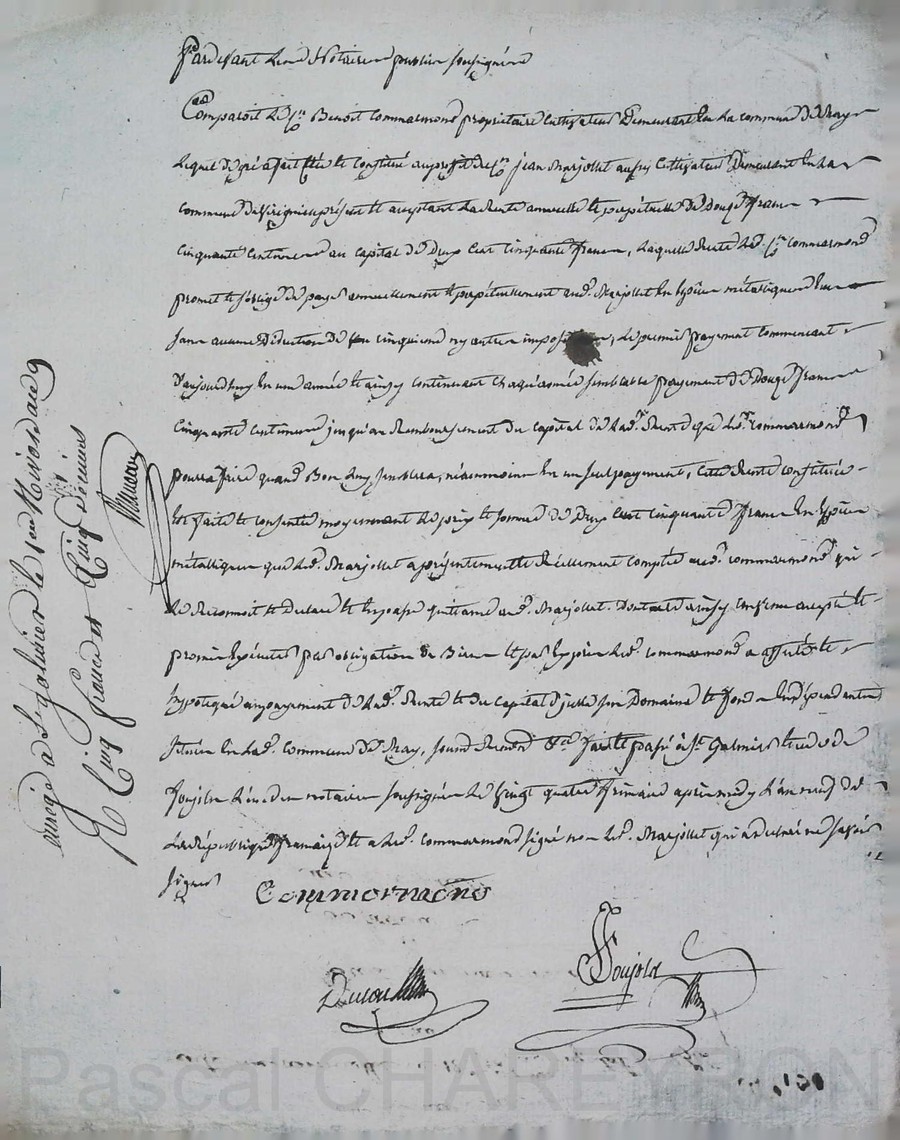 Pardevant les Notaires publics soussignés
Comparoit le cn Benoit Commarmond propriétaire cultivateur Demeurant En La commune de
Lequel de gré a fait Créé et constitué au profit du cn jean Marjollet aussi Cultivateur Demeurant En la
commune de présent et acceptant La Rente annuelle et perpétuelle de Douze francs
cinquante centimes au capital de Deux Cent cinquante francs, Laquelle Rente Led. cn Commarmond
promet et s'oblige de payer annuellement et perpétuellement aud. Marjollet En Espèces métalliques
sans aucune Déduction de cinquieme ny autres impositions, Le premier payement Commencant
D'aujourdhuy En une année et ainsy continuant chaque année semblable payement de Douze francs
cinquante centimes jusqu'au Remboursement du capital de Lad. Rente que Led. commarmond
pourra faire quand Bon Luy semblera, néanmoins En un seul payement, Cette Rente constituée
Est faite et consentie moyennant Le prix et somme de Deux Cent cinquante francs En Espèces
métalliques que Led. Marjollet a présentement Réellement compté aud. commarmond qui
Le Reconnoit et Declare et En passe quittance aud. Marjollet. Dont acte ainsy convenu accepté et
promis Exécuter par obligation de Biens et par Exprès Led. commarmond a affecté et
hypotéqué au payement de Lad. Rente et du capital D'jcelle son Domaine et fonds En dépendants
situés En Lad. Commune de, fait et passé à St Galmier Etude de
Soujols L'un des notaires soussignés Le Vingt quatre frimaire après midy L'an neuf de
La République française et a Led. Commarmond signé non Led. Marjollet qui a declaré ne savoir
signer
Commarmond
Soujols
enregé a St galmier le 1er Nivose an 9
R Cinq francs et Cinq decimes
Pascal CHAREYRON